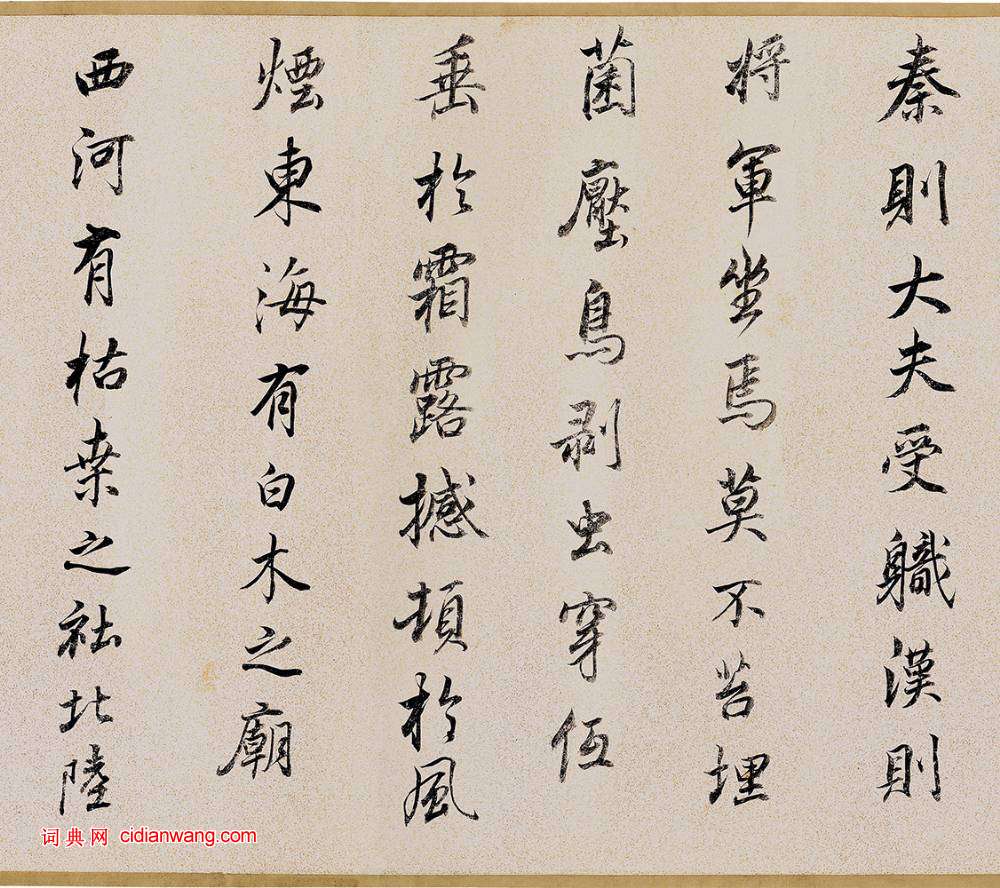 秦則大夫受職漢則
將軍坐焉莫不苔埋
菌壓鳥剥虫穿低
垂於霜露撼頓於風
煙東海有白木之廟
西河有枯桒之社北陸
词典网 cidianwang.com